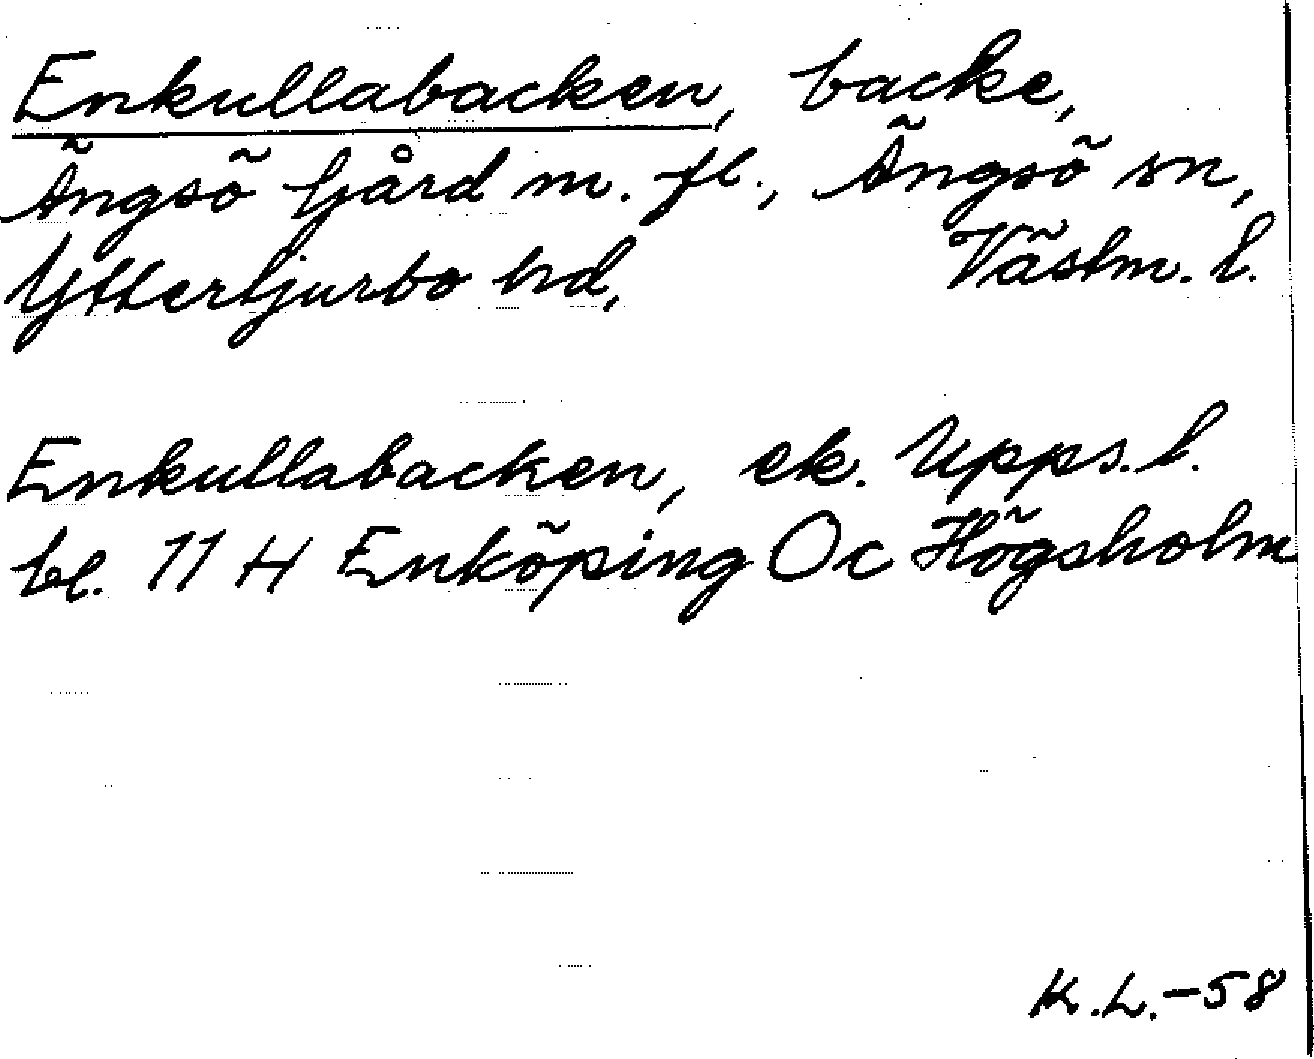 Enkullabacken, backe,
Ängsö Gård m. fl., Ängsö sn,
Yttertjurbo hd, Västm. l.
Enkullabacken, ek. Upps. l.
bl. 11 H Enköping Oc Högsholm
K.L.-58